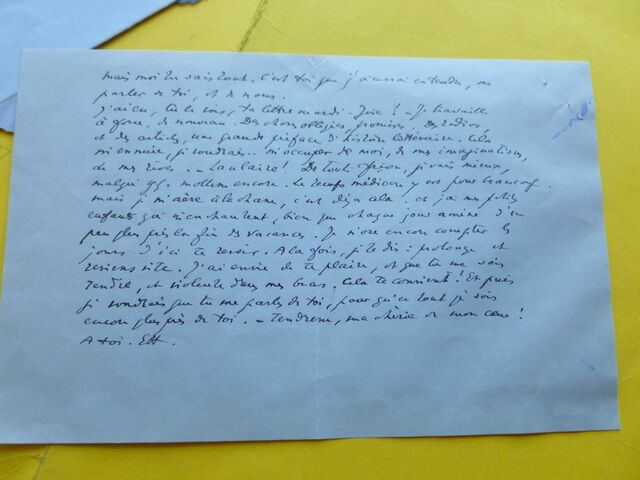 mais moi tu sais tout. C'est toi que j'aimerai entendre, me
parler de toi, et de nous.
J'ai eu, tu la vous, ta lettre mardi. Joie ! – Je travaille
à force, de nouveau. Des choses obligées, promises. Des radios,
et des articles, une grande préface d'histoire littéraire. Cela
m'ennuie, je voudrais.. m'occuper de moi, de mes imaginations,
de mes rêves. – La claire ! De toute façon, je vais mieux,
malgré qq. mollesse encore. Le temps médiocre y est pour beaucoup.
mais je m'aère à la chasse, c'est déjà cela. et j'ai mes petits
enfants qui m'enchantent, bien que chaque jour amène d'un
peu plus près la fin des vacances. Je n'ose encore compter les
jours d'ici te revoir. A la fois, je te dis : prolonge et
reviens vite. J'ai envie de te plaire, et que tu me sois
tendre, et violente dans mes bras. Cela te convient ! Et puis
je voudrais que tu me parles de toi, pour qu'en tout je sois
encore plus près de toi. – Tendresse, ma chérie de mon cœur !
A toi.